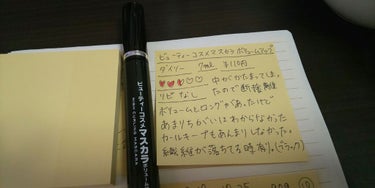 ビューティーコスメマスカラボリュームアップ
ダイソー 7ml ¥110円
中がかたまってしまっ
リピ なし たので断捨離
ボリュームとロングがあったけど
あまりちがいはわからなかった
カールキープもあんまりしなかった。
繊維が落ちてる時有り。(ブラック)
ビューティーコスメ
マスカラ
ボリューム